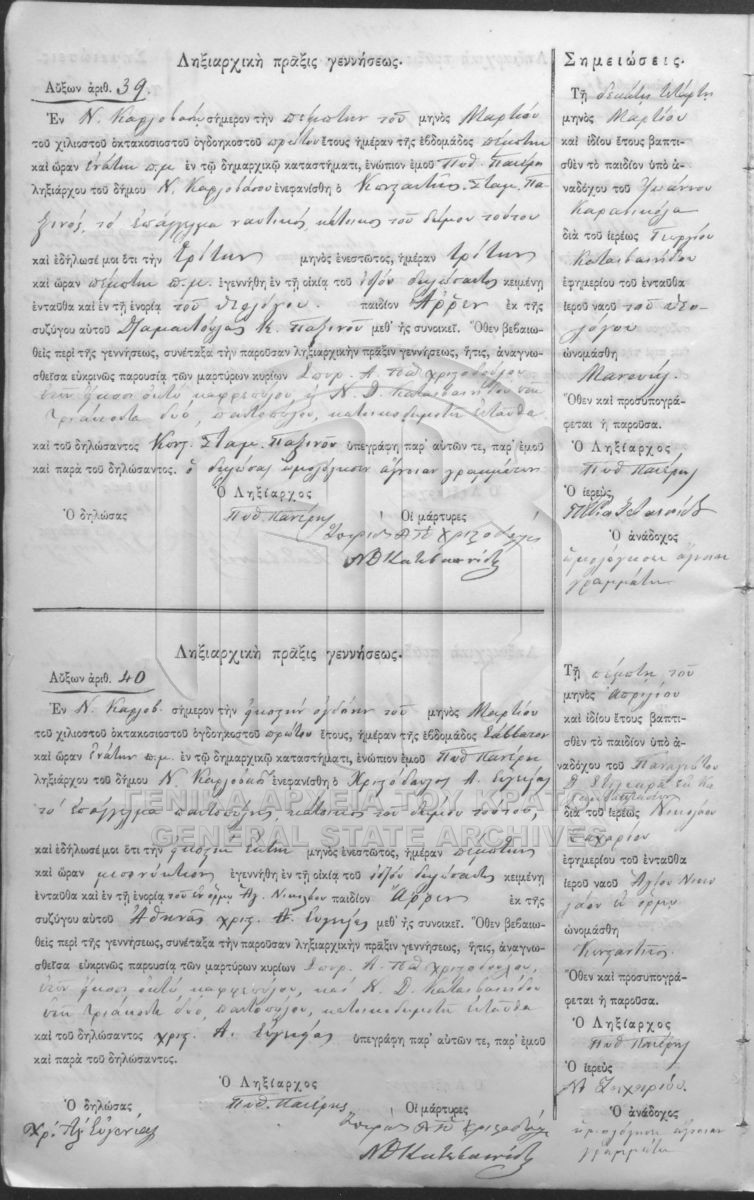 Ληξιαρχικὴ πρᾶξις γεννήσεως.
Αὔξων ἀριθ. 39.
Ἐν Ν. Καρλοβάσῳ σήμερον τὴν πέμπτην τοῦ μηνὸς Μαρτίου
τοῦ χιλιοστοῦ ὀκτακοσιοστοῦ ὀγδοηκοστοῦ πρώτου ἔτους ἡμέραν τῆς ἑβδομάδος πέμπτην
καὶ ὥραν ἐνάτην π.μ. ἐν τῷ δημαρχικῷ καταστήματι, ἐνώπιον ἐμοῦ Πυθ. Πανέρη
ληξιάρχου τοῦ δήμου Ν. Καρλοβάσου ἐνεφανίσθη ὁ Κωνσταντῖνος Σταμ. Πα-
ξινός, τὸ ἐπάγγελμα ναυτικός, κάτοικος τοῦ δήμου τούτου
καὶ ἐδήλωσέ μοι ὅτι τὴν τρίτην μηνὸς ἐνεστῶτος, ἡμέραν τρίτην
καὶ ὥραν πέμπτην π.μ. ἐγεννήθη ἐν τῇ οἰκίᾳ τοῦ ἰδίου δηλώσαντος κειμένῃ
ἐνταῦθα καὶ ἐν τῇ ἐνορίᾳ τοῦ Θεολόγου. παιδίον Ἄρρεν ἐκ τῆς
συζύγου αὐτοῦ Σταματούλας Κ. Παξινοῦ μεθ' ἧς συνοικεῖ. Ὅθεν βεβαιω-
θεὶς περὶ τῆς γεννήσεως, συνέταξα τὴν παροῦσαν ληξιαρχικὴν πρᾶξιν γεννήσεως, ἥτις, ἀναγνω-
σθεῖσα εὐκρινῶς παρουσίᾳ τῶν μαρτύρων κυρίων Σπυρ. Α. Πα Χριζοδούλου
ἐτῶν εἴκοσι ὀκτὼ καφφεπώλου, Ν. Δ. Καταιβαινίδου ἐτῶν
τριάκοντα δύο, παντοπώλου, κατοικοδημότη ἐνταῦθα
καὶ τοῦ δηλώσαντος Κωνσ. Σταμ. Παξινοῦ ὑπεγράφη παρ' αὐτῶν τε, παρ' ἐμοῦ
καὶ παρὰ τοῦ δηλώσαντος. ὁ δηλώσας ὡμολόγησεν ἄγνοιαν γραμμάτων
Ὁ Ληξίαρχος
Ὁ δηλώσας Πυθ. Πανέρης Οἱ μάρτυρες
Ν Δ Καταιβαινίδης
Σημειώσεις.
Τῇ δεκάτῃ τετάρτῃ
μηνὸς Μαρτίου
καὶ ἰδίου ἔτους βαπτι-
σθὲν τὸ παιδίον ὑπὸ ἀ-
ναδόχου τοῦ Ἰωάννου
διὰ τοῦ ἱερέως Γεωργίου
Καταιβαινίδου
ἐφημερίου τοῦ ἐνταῦθα
ἱεροῦ ναοῦ τοῦ Θεο-
λόγου
ὠνομάσθη
Μανουήλ.
Ὅθεν καὶ προσυπογρά-
φεται ἡ παροῦσα.
Ὁ Ληξίαρχος
Πυθ Πανέρης
Ὁ ἱερεύς,
Ὁ ἀνάδοχος
ὡμολόγησεν ἄγνοιαν
γραμμάτων
Ληξιαρχικὴ πρᾶξις γεννήσεως.
Αὔξων ἀριθ. 40
Ἐν Ν. Καρλοβ. σήμερον τὴν εἰκοστὴν ὀγδόην τοῦ μηνὸς Μαρτίου
τοῦ χιλιοστοῦ ὀκτακοσιοστοῦ ὀγδοηκοστοῦ πρώτου ἔτους, ἡμέραν τῆς ἑβδομάδος Σάββατον
καὶ ὥραν ἐνάτην π.μ. ἐν τῷ δημαρχικῷ καταστήματι, ἐνώπιον ἐμοῦ Πυθ Πανέρη
ληξιάρχου τοῦ δήμου Ν. Καρλοβάσ. ἐνεφανίσθη ὁ Χριζόδουλος Α. Εὐγενίας
τὸ ἐπάγγελμα παντοπώλης, κάτοικος τοῦ δήμου τούτου,
καὶ ἐδήλωσέ μοι ὅτι τὴν εἰκοστὴν ἕκτην μηνὸς ἐνεστῶτος, ἡμέραν πέμπτην
καὶ ὥραν μεσονύκτιον ἐγεννήθη ἐν τῇ οἰκίᾳ τοῦ ἰδίου δηλώσαντος κειμένῃ
ἐνταῦθα καὶ ἐν τῇ ἐνορίᾳ τοῦ ἐν ὅρμῳ Ἁγ. Νικολάου παιδίον Ἄρρεν ἐκ τῆς
συζύγου αὐτοῦ Ἀθηνᾶς Χριζ. Α. Εὐγενίας μεθ' ἧς συνοικεῖ. Ὅθεν βεβαιω-
θεὶς περὶ τῆς γεννήσεως, συνέταξα τὴν παροῦσαν ληξιαρχικὴν πρᾶξιν γεννήσεως, ἥτις, ἀναγνω-
σθεῖσα εὐκρινῶς παρουσίᾳ τῶν μαρτύρων κυρίων Σπυρ. Α. Πα Χριζοδούλου,
ἐτῶν εἴκοσι ὀκτὼ καφφεπώλου, καὶ Ν. Δ. Καταιβαινίδου
ἐτῶν τριάκοντα δύο, παντοπώλου, κατοικοδημότη ἐνταῦθα
καὶ τοῦ δηλώσαντος Χριζ. Α. Εὐγενίας ὑπεγράφη παρ' αὐτῶν τε, παρ' ἐμοῦ
καὶ παρὰ τοῦ δηλώσαντος.
Ὁ Ληξίαρχος
Ὁ δηλώσας Πυθ. Πανέρης Οἱ μάρτυρες
Χρ. Εὐγενίας
Ν Δ Καταιβαινίδης
Τῇ πέμπτῃ τοῦ
μηνὸς Ἀπριλίου
καὶ ἰδίου ἔτους βαπτι-
σθὲν τὸ παιδίον ὑπὸ ἀ-
ναδόχου τοῦ Παναγιώτου
διὰ τοῦ ἱερέως Νικολάου
Ζαχαρίου
ἐφημερίου τοῦ ἐνταῦθα
ἱεροῦ ναοῦ Ἁγίου Νικο
λάου ἐν ὅρμῳ
ὠνομάσθη
Κωνσαντῖνος.
Ὅθεν καὶ προσυπογρά-
φεται ἡ παροῦσα.
Ὁ Ληξίαρχος
Πυθ Πανέρης
Ὁ ἱερεὺς
Ὁ ἀνάδοχος
ὡμολόγησεν ἄγνοιαν
γραμμάτων
ΓΕΝΙΚΑ ΑΡΧΕΙΑ ΤΟΥ ΚΡΑΤΟΥΣ
GENERAL STATE ARCHIVES